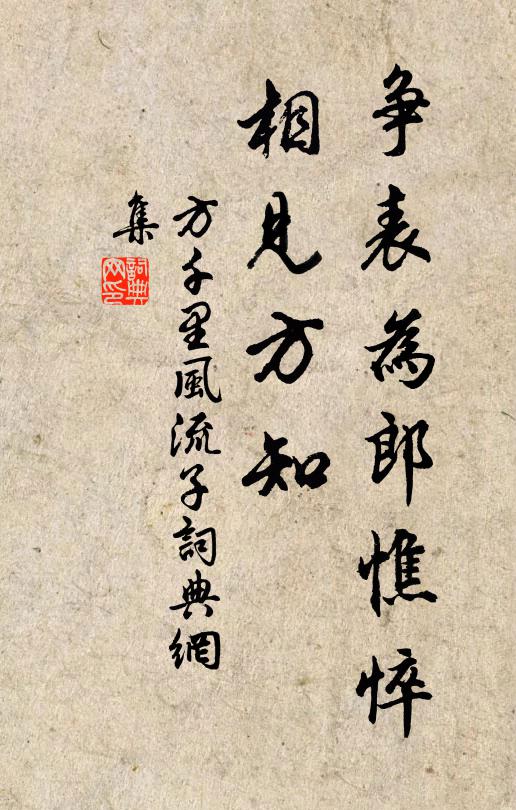 争表為郎憔悴
相見方知
方千里風流子詞典網
集
詞典
网印